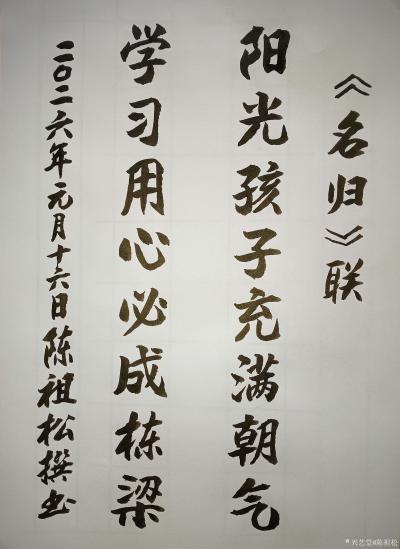 《名归》联
阳光孩子充满朝气
学习用心必成栋梁
二〇二六年元月十六日陈祖松撰书
兴艺堂@陈祖松